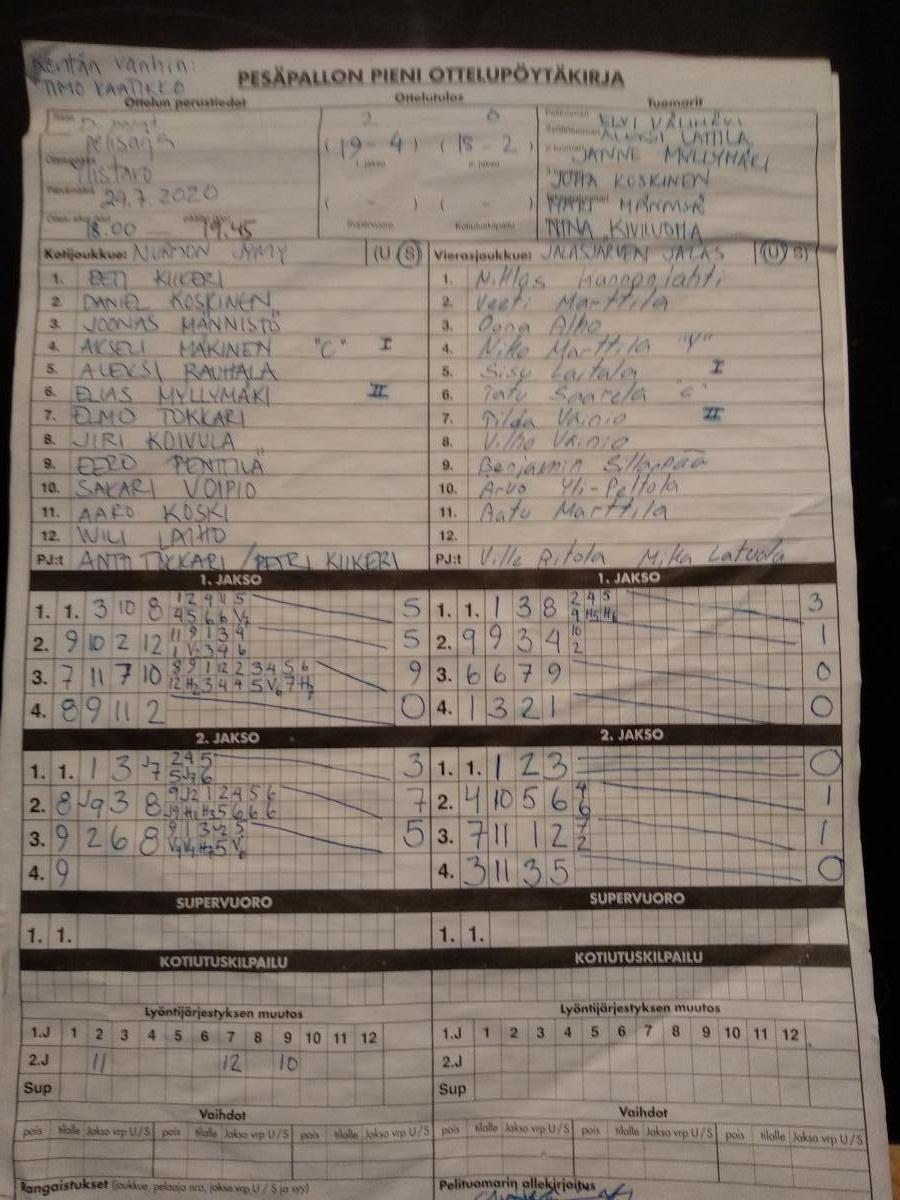 Kentän vanhin:
TIMO KAATIKKO
PESÄPALLON PIENI OTTELUPÖYTÄKIRJA
Ottelun perustiedot
Ottelutulos
Tuomarit
pelisarja
Ylistaro
Päivämäärä 29.7.2020
18.00 — 19.45
2 0
(19 - 4) (15 - 2)
1. jakso 2. jakso
( - ) ( - )
Supervuoro Kotiutuskilpailu
ELVI VÄLIMÄKI
ALEKSI LATTILA
JANNE MYLLYMÄKI
JUHA KOSKINEN
NINA KIVILUOMA
Kotijoukkue: NURMON JYMY (U S)
1. EETI KIIKERI
2. DANIEL KOSKINEN
3. JOONAS MÄNNISTÖ
4. AKSELI MÄKINEN "C" I
5. ALEKSI RAUHALA
6. ELIAS MYLLYMÄKI II
7. ELMO TOKKARI
8. JIRI KOIVULA
9. EERO PENTTILÄ
10. SAKARI VOIPIO
11. AARO KOSKI
12. WILI LAIHO
PJ:t ANTTI TOKKARI / PETRI KIIKERI
Vierasjoukkue: JALASJÄRVEN JALAS (U S)
1. Niklas
2. Veeti Marttila
3. Oona Alho
4. Niko Marttila "V"
5. Sisu Laitala I
6. Tatu Saarela "C"
7. Tilda Vainio II
8. Vilho Vainio
9. Benjamin Sillanpää
10. Arvo Yli-Peltola
11. Aatu Marttila
12.
PJ:t Ville Ritola Mika Latvala
1. JAKSO
1. 1. 3 10 8 1 2 9 11 5 5
4 5 6 6
2. 9 10 2 12 11 9 1 3 4 5
3. 7 11 7 10 8 9 1 12 2 3 4 5 6 9
4. 8 9 11 2 0
1. JAKSO
1. 1. 1 3 8 2 4 5 3
2. 9 9 3 4 10 1
2
3. 6 6 7 9 0
4. 1 3 2 1 0
2. JAKSO
1. 1. 1 3 J7 2 4 5 3
5 J7 6
2. 8 J9 3 8 9 J2 1 2 4 5 6 7
3. 9 2 6 8 5
4. 9
2. JAKSO
1. 1. 1 2 3 0
2. 4 10 5 6 4 1
6
3. 7 11 1 2 7 1
2
4. 3 11 3 5 0
SUPERVUORO
1. 1.
SUPERVUORO
1. 1.
KOTIUTUSKILPAILU
KOTIUTUSKILPAILU
Lyöntijärjestyksen muutos
1.J 1 2 3 4 5 6 7 8 9 10 11 12
2.J 11 12 10
Sup
Lyöntijärjestyksen muutos
1.J 1 2 3 4 5 6 7 8 9 10 11 12
2.J
Sup
Vaihdot
pois tilalle Jakso vrp U/S pois tilalle Jakso vrp U/S pois tilalle Jakso vrp U/S
Vaihdot
pois tilalle Jakso vrp U/S pois tilalle Jakso vrp U/S pois tilalle Jakso vrp U/S
Rangaistukset (joukkue, pelaaja nro, jakso vrp U / S ja syy)
Pelituomarin allekirjoitus